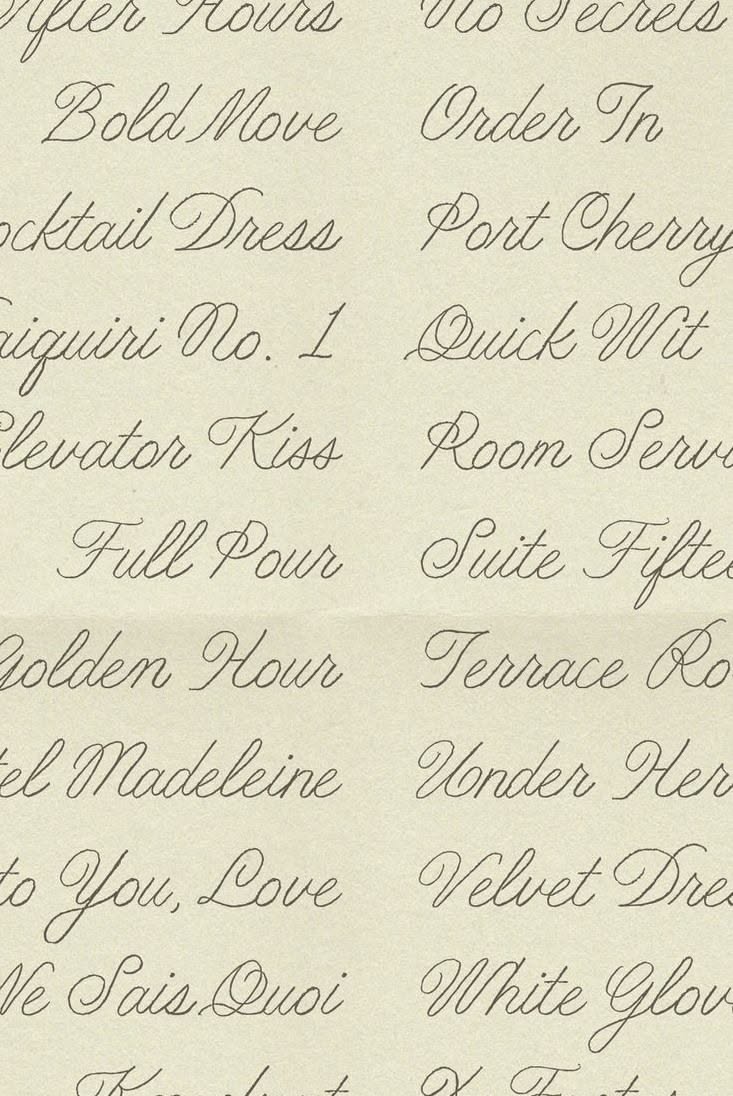 After Hours
Bold Move
ocktail Dress
aiquiri No. 1
Elevator Kiss
Full Pour
Golden Hour
tel Madeleine
to You, Love
Ne Sais Quoi
No Secrets
Order In
Port Cherry
Quick Wit
Room Servi
Suite Fiftee
Terrace Ro
Under Her
Velvet Dres
White Glov